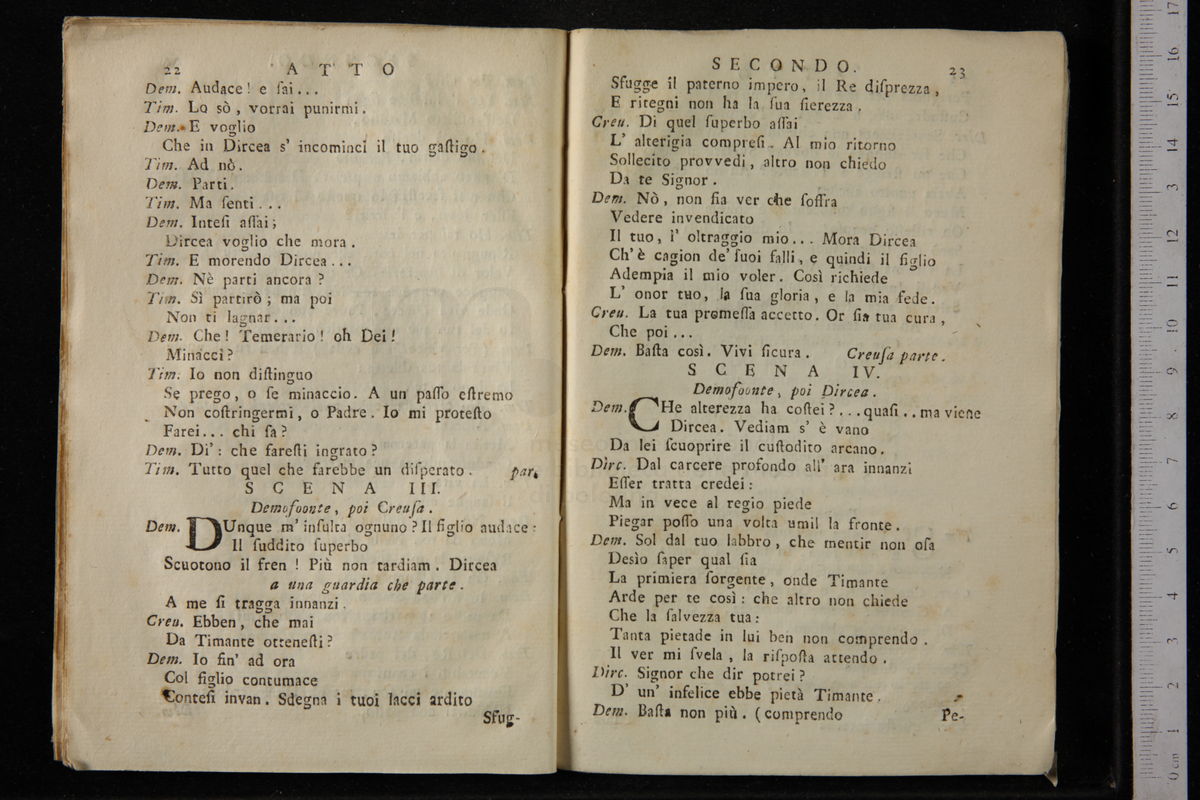 22 ATTO
Dem. Audace! e ſai...
Tim. Lo sò, vorrai punirmi.
Dem. E voglio
Che in Dircea s' incominci il tuo gaſtigo.
Tim. Ad nò.
Dem. Parti.
Tim. Ma ſenti...
Dem. Inteſi aſſai;
Dircea voglio che mora.
Tim. E morendo Dircea...
Dem. Nè parti ancora?
Tim. Sì partirò; ma poi
Non ti lagnar...
Dem. Che! Temerario! oh Dei!
Minacci?
Tim. Io non diſtinguo
Se prego, o ſe minaccio. A un paſſo eſtremo
Non coſtringermi, o Padre. Io mi proteſto
Farei... chi ſa?
Dem. Di': che fareſti ingrato?
Tim. Tutto quel che farebbe un diſperato. par.
SCENA III.
Demofoonte, poi Creuſa.
Dem. DUnque m' inſulta ognuno? Il figlio audace:
Il ſuddito ſuperbo
Scuotono il fren! Più non tardiam. Dircea
a una guardia che parte.
A me ſi tragga innanzi.
Creu. Ebben, che mai
Da Timante otteneſti?
Dem. Io fin' ad ora
Col figlio contumace
Conteſi invan. Sdegna i tuoi lacci ardito
Sfug-
SECONDO. 23
Sfugge il paterno impero, il Re diſprezza,
E ritegni non ha la ſua fierezza.
Creu. Di quel ſuperbo aſſai
L' alterigia compreſi. Al mio ritorno
Sollecito provvedi, altro non chiedo
Da te Signor.
Dem. Nò, non fia ver che ſoffra
Vedere invendicato
Il tuo, l' oltraggio mio... Mora Dircea
Ch' è cagion de' ſuoi falli, e quindi il figlio
Adempia il mio voler. Così richiede
L' onor tuo, la ſua gloria, e la mia fede.
Creu. La tua promeſſa accetto. Or ſia tua cura,
Che poi...
Dem. Baſta così. Vivi ſicura. Creuſa parte.
SCENA IV.
Demofoonte, poi Dircea.
Dem. CHe alterezza ha coſtei?...quaſi..ma viene
Dircea. Vediam s' è vano
Da lei ſcuoprire il cuſtodito arcano.
Dirc. Dal carcere profondo all' ara innanzi
Eſſer tratta credei:
Ma in vece al regio piede
Piegar poſſo una volta umil la fronte.
Dem. Sol dal tuo labbro, che mentir non oſa
Desìo ſaper qual ſia
La primiera ſorgente, onde Timante
Arde per te così: che altro non chiede
Che la ſalvezza tua:
Tanta pietade in lui ben non comprendo.
Il ver mi ſvela, la riſpoſta attendo.
Dirc. Signor che dir potrei?
D' un' infelice ebbe pietà Timante.
Dem. Baſta non più. (comprendo
Pe-